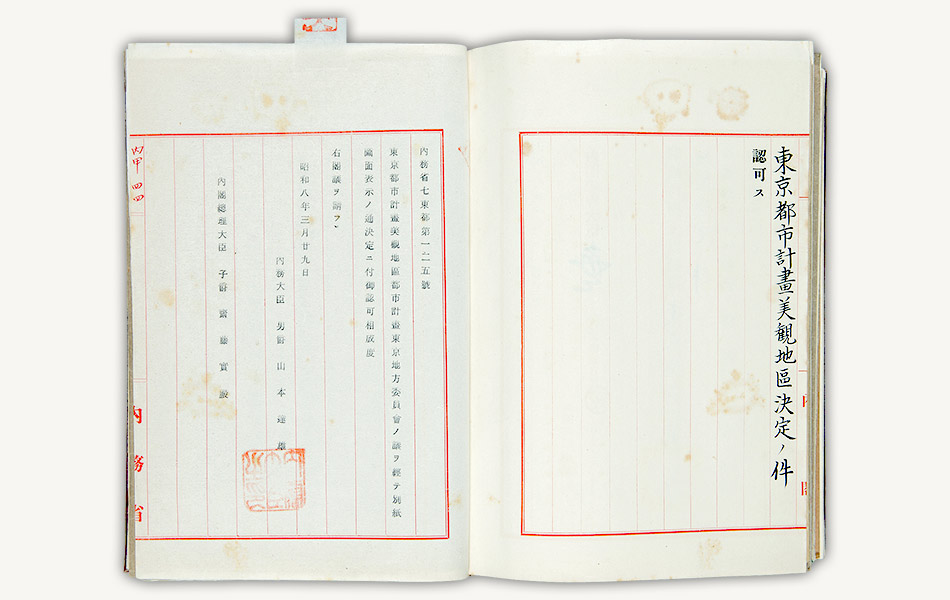 東京都市計畫美観地區決定ノ件
認可ス
內閣
內務省七東都第一二五號
東京都市計畫美觀地區都市計畫東京地方委員會ノ議ヲ經テ別紙
圖面表示ノ通決定ニ付御認可相成度
右閣議ヲ請フ
昭和八年三月廿九日
內務大臣 男爵 山本達雄
內閣總理大臣 子爵 齋藤實殿
丙甲 四四
內務省